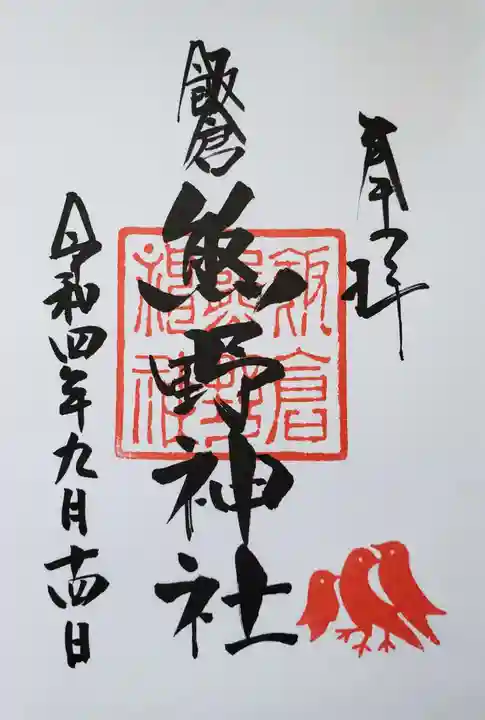 奉拝
飯倉
熊野神社
令和四年九月十四日
飯倉
熊野
神社